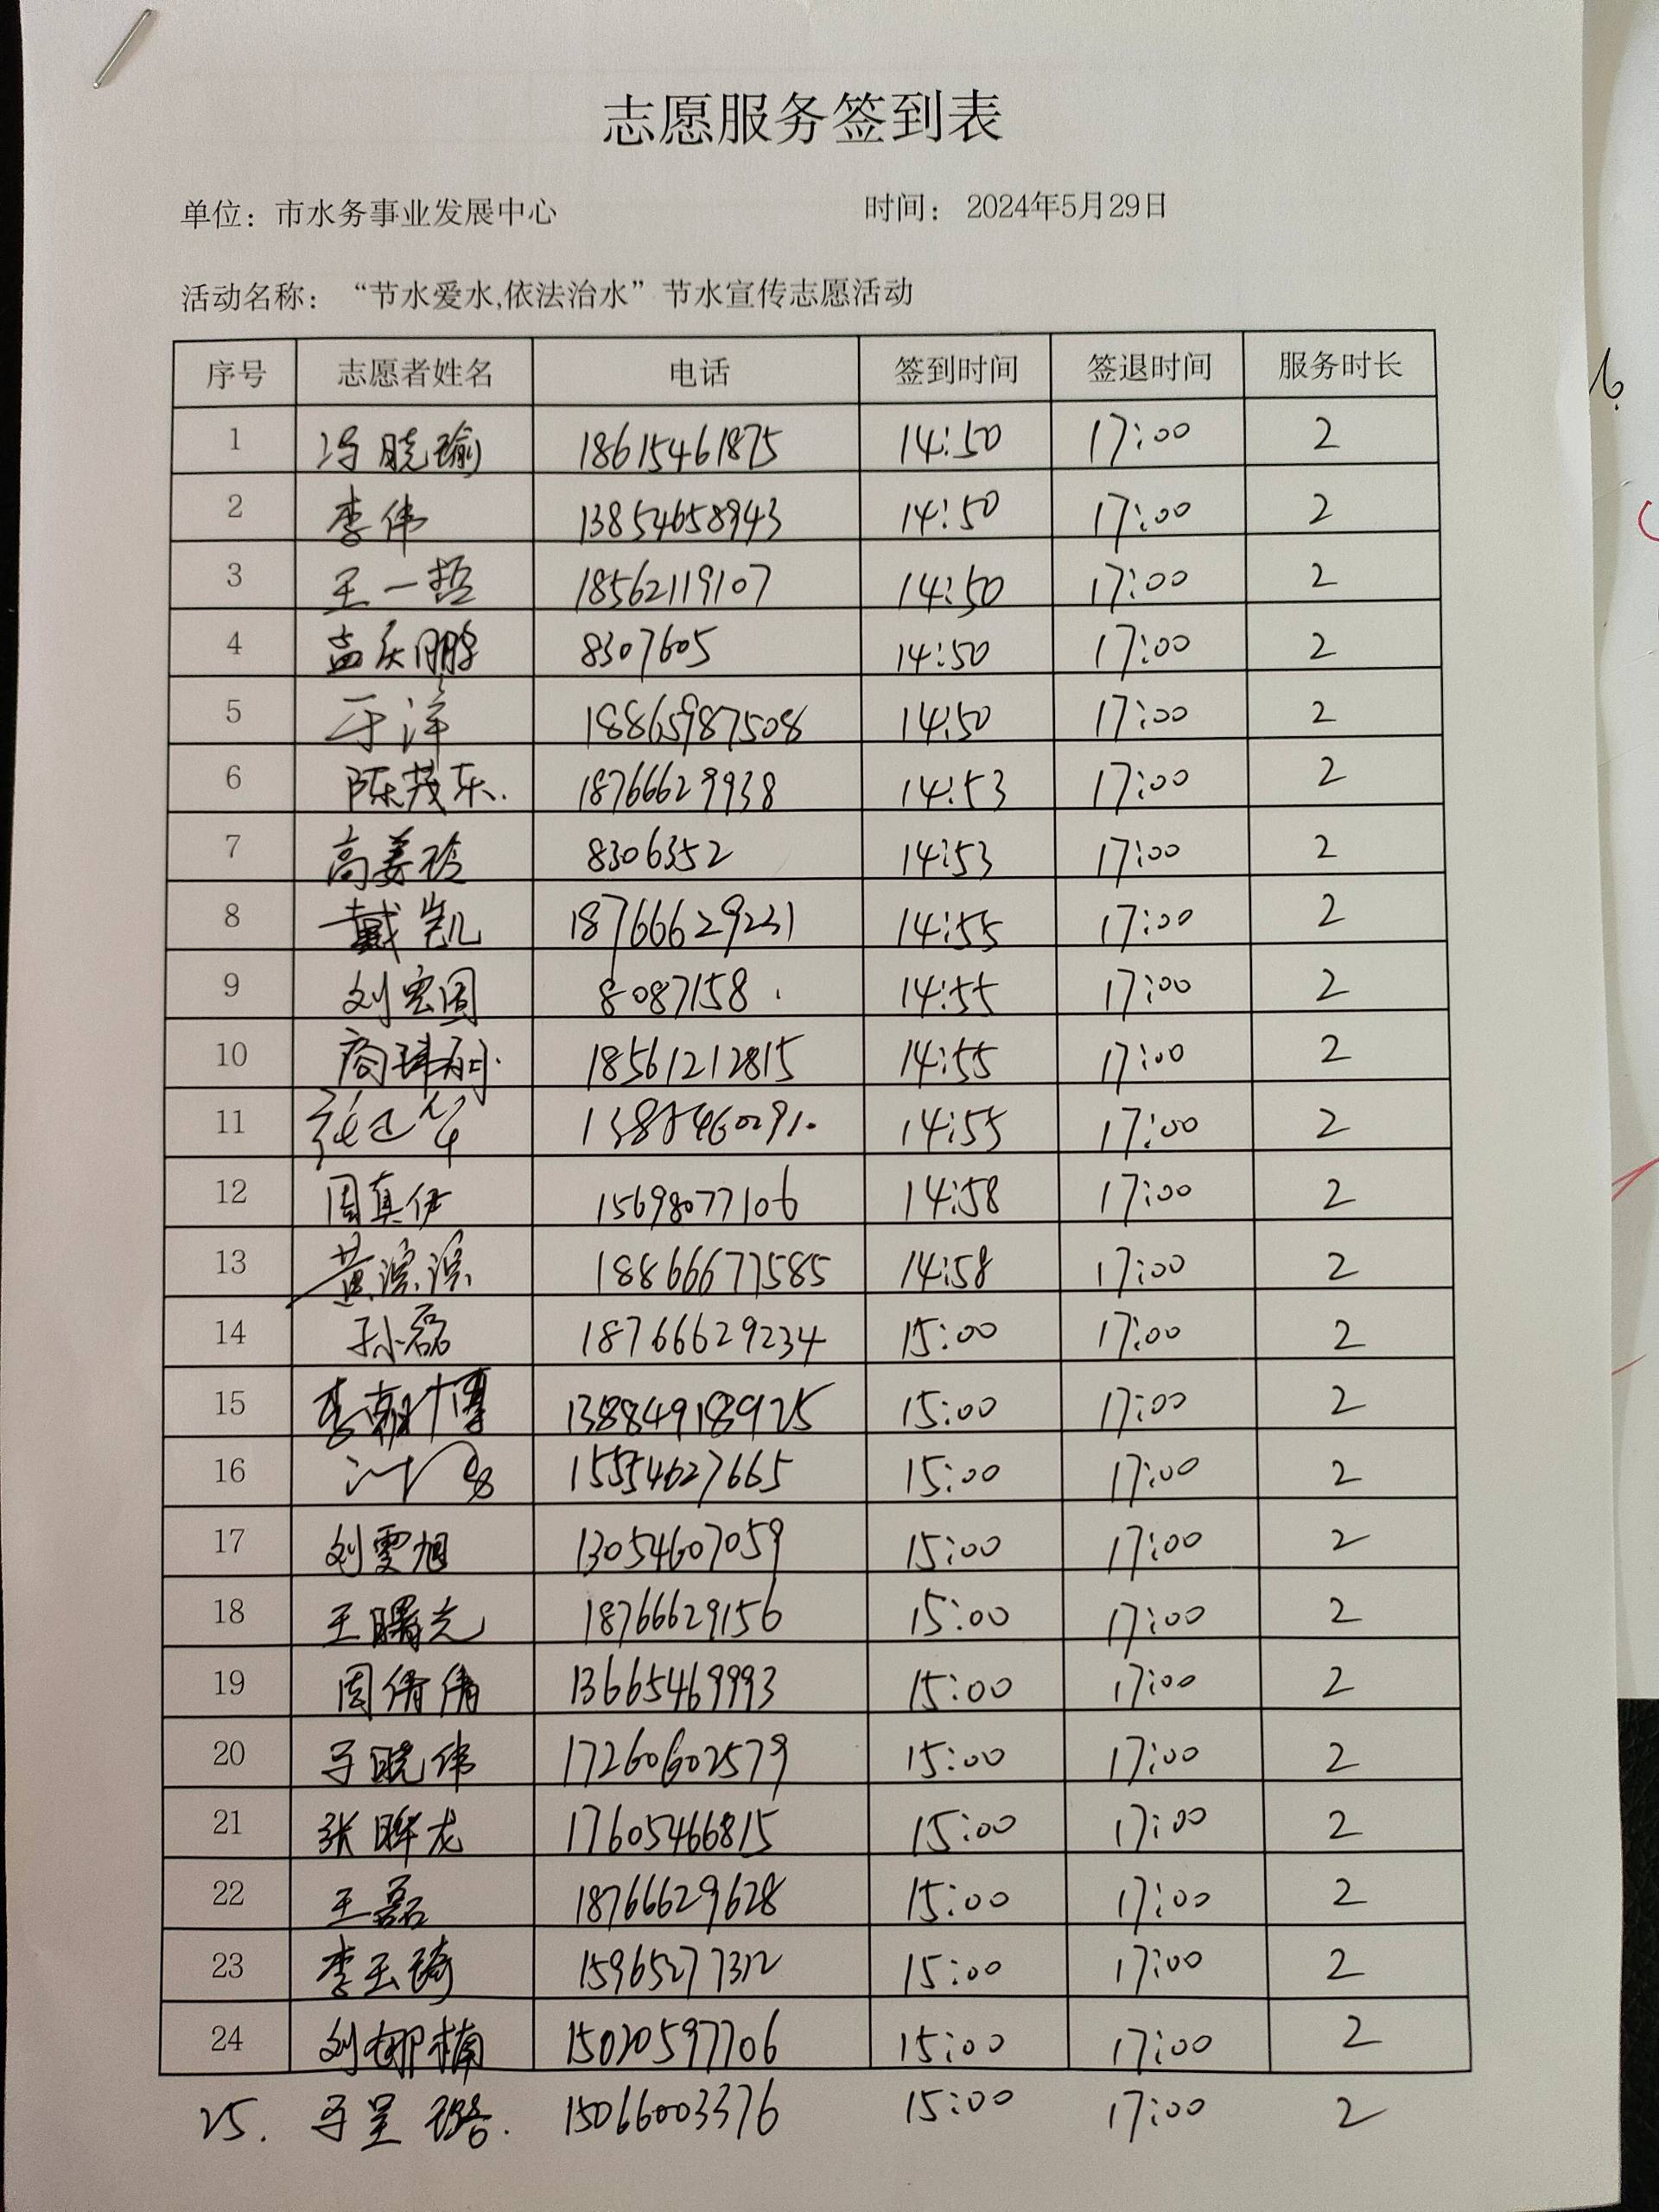 志愿服务签到表
单位：市水务事业发展中心 时间： 2024年5月29日
活动名称：“节水爱水,依法治水”节水宣传志愿活动
序号 志愿者姓名 电话 签到时间 签退时间 服务时长
1 冯晓瑜 18615461875 14:50 17:00 2
2 李伟 13854658943 14:50 17:00 2
3 王一哲 18562119107 14:50 17:00 2
4 孟庆鹏 8307605 14:50 17:00 2
5 于洋 18865987508 14:50 17:00 2
6 陈茂东. 18766629938 14:53 17:00 2
7 高姜玲 8306352 14:53 17:00 2
8 戴凯 18766629231 14:55 17:00 2
9 刘宏图 8087158. 14:55 17:00 2
10 18561212815 14:55 17:00 2
11 14:55 17:00 2
12 周真伊 15698077106 14:58 17:00 2
13 黄滨滨 18866677585 14:58 17:00 2
14 孙磊 18766629234 15:00 17:00 2
15 15:00 17:00 2
16 15554627665 15:00 17:00 2
17 刘雯旭 13054607059 15:00 17:00 2
18 王曙光 18766629156 15:00 17:00 2
19 周倩倩 13665469993 15:00 17:00 2
20 于晓伟 17260602579 15:00 17:00 2
21 张晖龙 17605466815 15:00 17:00 2
22 王磊 18766629628 15:00 17:00 2
23 李玉琦 15965277312 15:00 17:00 2
24 刘娜楠 15020597706 15:00 17:00 2
25. 于呈璐. 15066003376 15:00 17:00 2